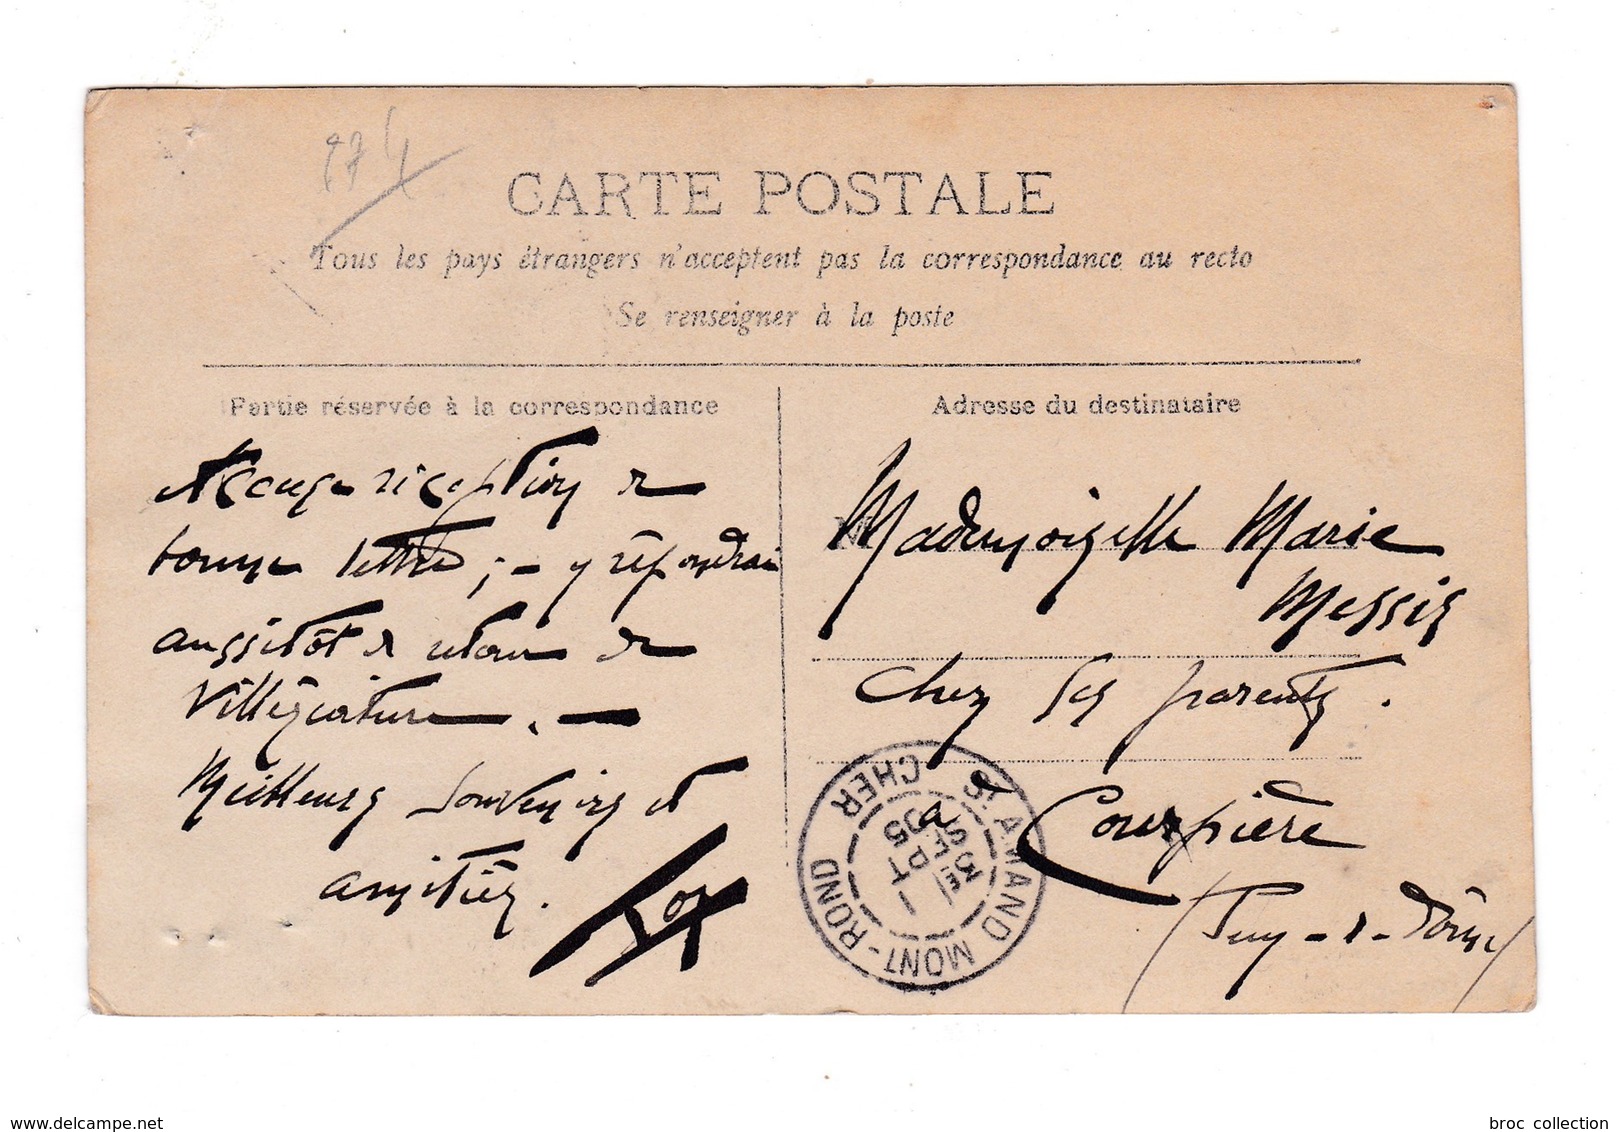 874
CARTE POSTALE
Tous les pays étrangers n'acceptent pas la correspondance au recto
Se renseigner à la poste
Partie réservée à la correspondance
Accuse réception de
bonne lettre ; - y répondrai
aussitôt de retour de
Villégiature. —
Meilleurs souvenirs et
amitiés.
Adresse du destinataire
M
Mademoiselle Marie
Messis
Chez ses parents.
à Courpière
(Puy-de-Dôme)
ST AMAND MONT-ROND
CHER
3E
1
SEPT
05
www.delcampe.net
broc collection